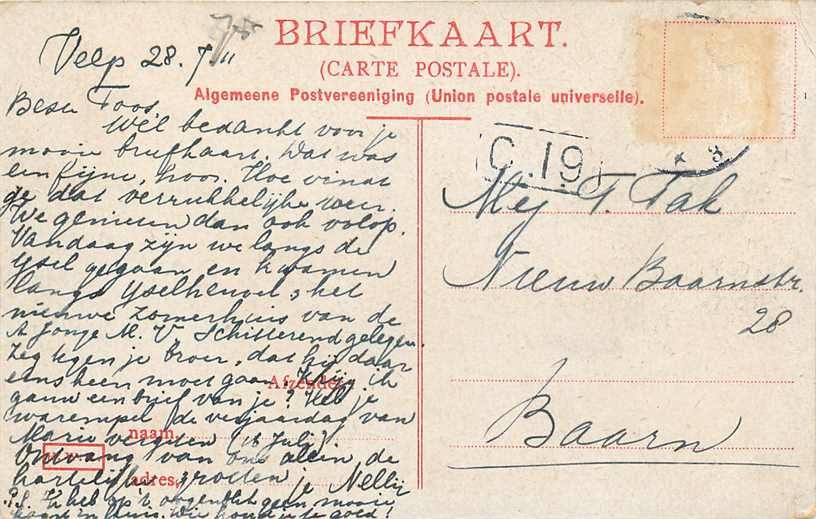 BRIEFKAART.
(CARTE POSTALE).
Algemeene Postvereeniging (Union postale universelle).
Velp 28.7 11
Beste Toos,
Wel bedankt voor je
mooie briefkaart. Dat was
een fijne, hoor. Hoe vindt
ge dat verrukkelijke weer.
We genieten dan ook volop.
Vandaag zijn we langs de
IJsel gegaan en kwamen
langs IJselheuvel, het
nieuwe zomerhuis van de
A Jonge M. V. Schitterend gelegen
Zeg tegen je broer, dat hij daar
eens heen moet gaan. Krijg ik
gauw een brief van je? Heb je
warempel de verjaardag van
Marie vergeten (18 Juli)
Ontvang van ons allen de
hartelijke groeten je Nelly
P.S. Ik heb op 't oogenblik geen mooie
kaart in huis. Die houd u te goed!
Afzender
naam,
adres,
C. 19
Mej T. Tak
Nieuw Baarnstr.
28
Baarn